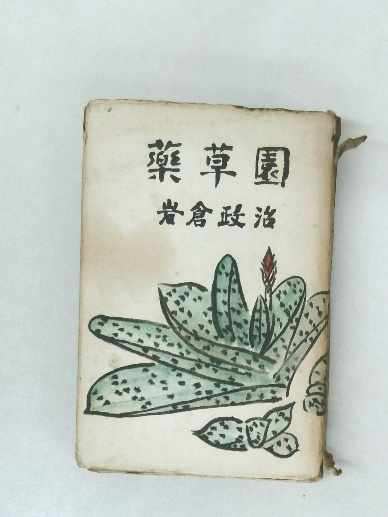 藥草園
岩倉政治